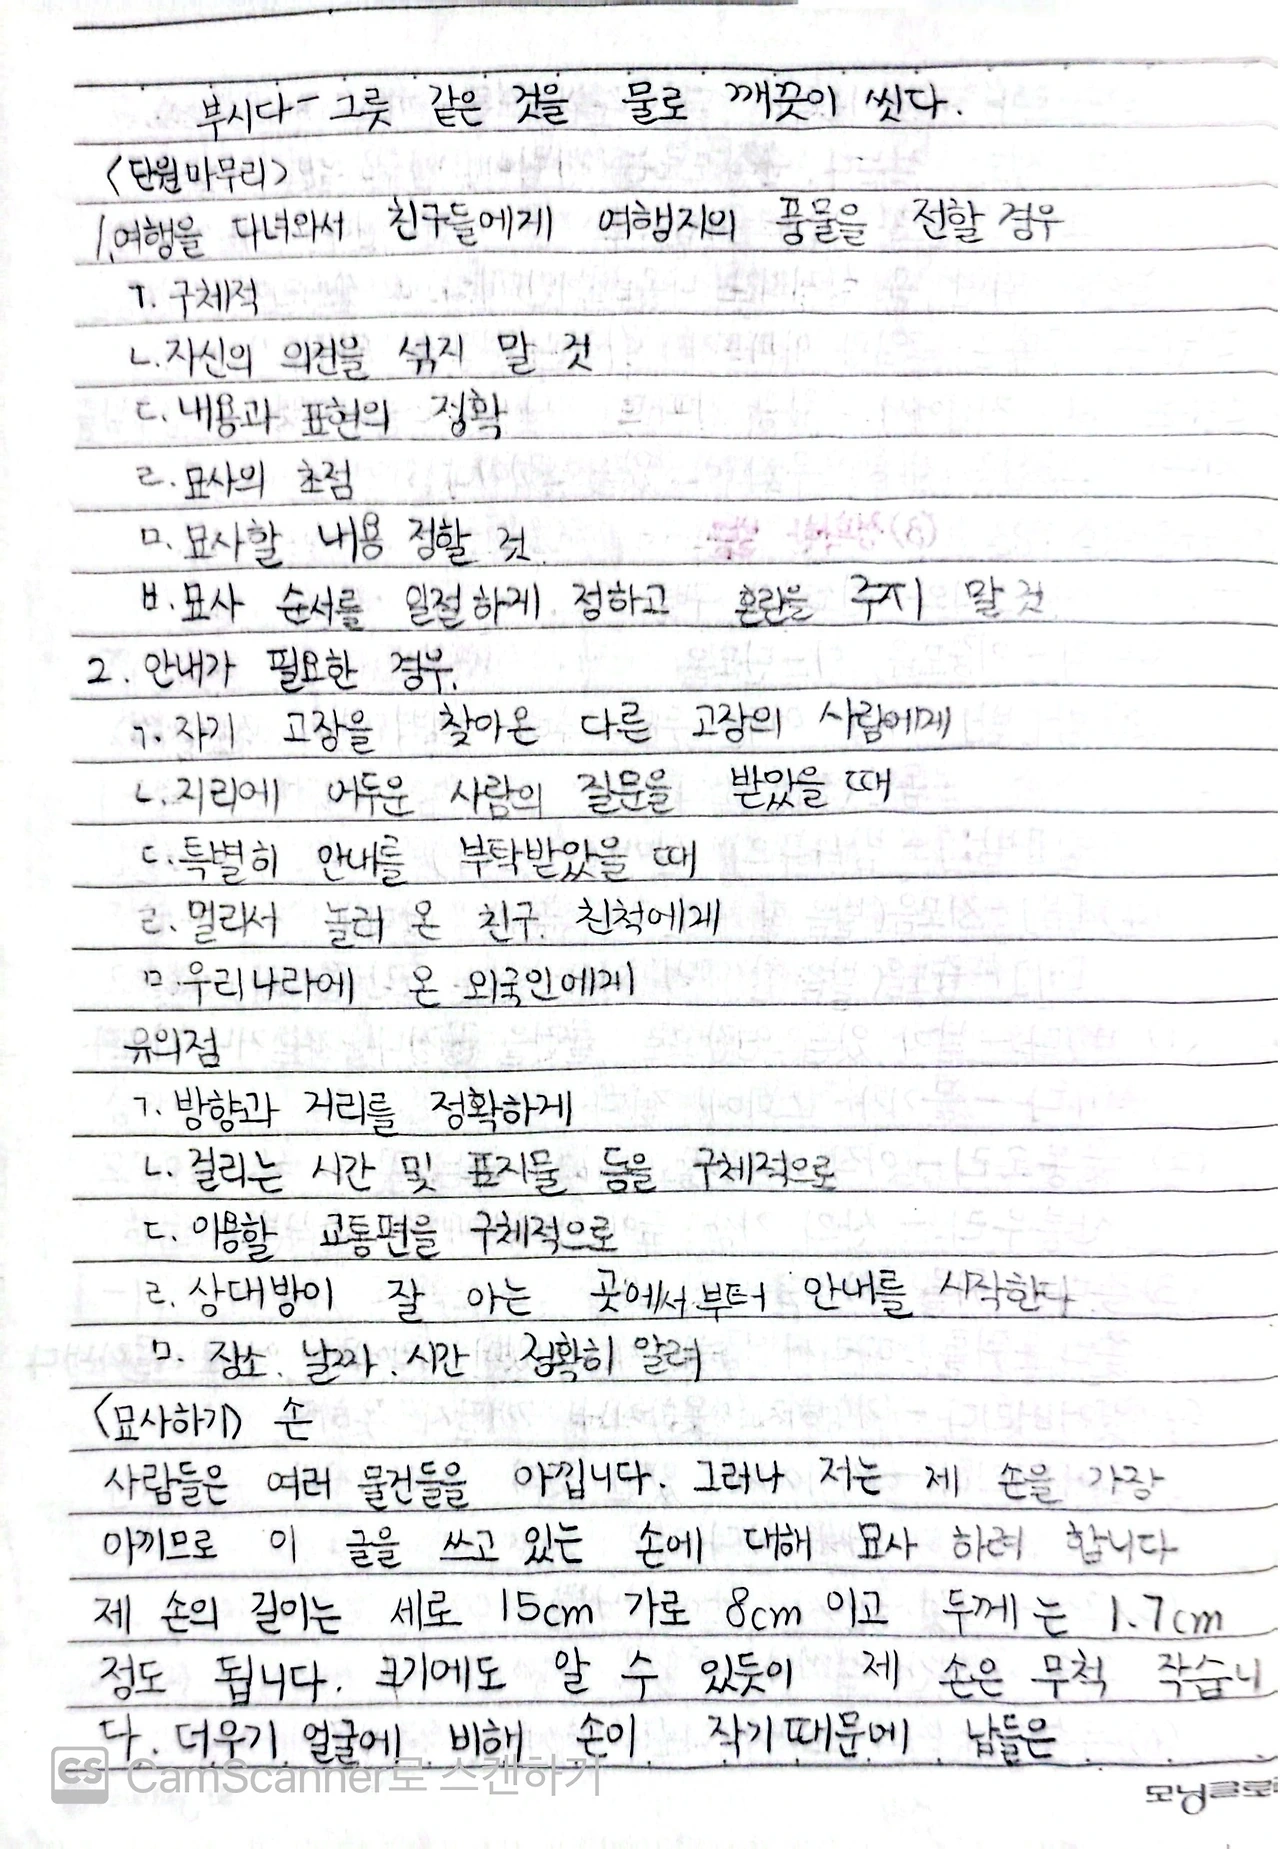 부시다 - 그릇 같은 것을 물로 깨끗이 씻다.
<단원마무리>
1. 여행을 다녀와서 친구들에게 여행지의 풍물을 전할 경우
ㄱ. 구체적
ㄴ. 자신의 의견을 섞지 말 것.
ㄷ. 내용과 표현의 정확
ㄹ. 묘사의 초점
ㅁ. 묘사할 내용 정할 것.
ㅂ. 묘사 순서를 일절하게 정하고 혼란을 주지 말 것
2. 안내가 필요한 경우.
ㄱ. 자기 고장을 찾아온 다른 고장의 사람에게
ㄴ. 지리에 어두운 사람의 질문을 받았을 때
ㄷ. 특별히 안내를 부탁받았을 때
ㄹ. 멀리서 놀러 온 친구. 친척에게
ㅁ. 우리나라에 온 외국인에게
유의점
ㄱ. 방향과 거리를 정확하게
ㄴ. 걸리는 시간 및 표지물 등을 구체적으로
ㄷ. 이용할 교통편을 구체적으로
ㄹ. 상대방이 잘 아는 곳에서부터 안내를 시작한다.
ㅁ. 장소. 날짜. 시간 정확히 알려
<묘사하기> 손
사람들은 여러 물건들을 아낍니다. 그러나 저는 제 손을 가장
아끼므로 이 글을 쓰고 있는 손에 대해 묘사 하려 합니다
제 손의 길이는 세로 15cm 가로 8cm 이고 두께는 1.7cm
정도 됩니다. 크기에도 알 수 있듯이 제 손은 무척 작습니
다. 더우기 얼굴에 비해 손이 작기때문에 남들은
CS CamScanner로 스캔하기
모닝글로